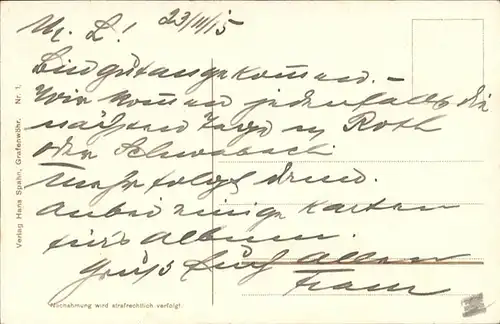 M. L.! 23/11/15
Bin gut angekommen. -
Wir kommen jedenfalls die
nächsten Tage n. Roth
oder Schwabach
Mehr folgt
Anbei einige Karten
für's Album.
Gruß Euch Allen
Franz
Verlag Hans Spahn, Grafenwöhr. Nr. 1.
Nachahmung wird strafrechtlich verfolgt.